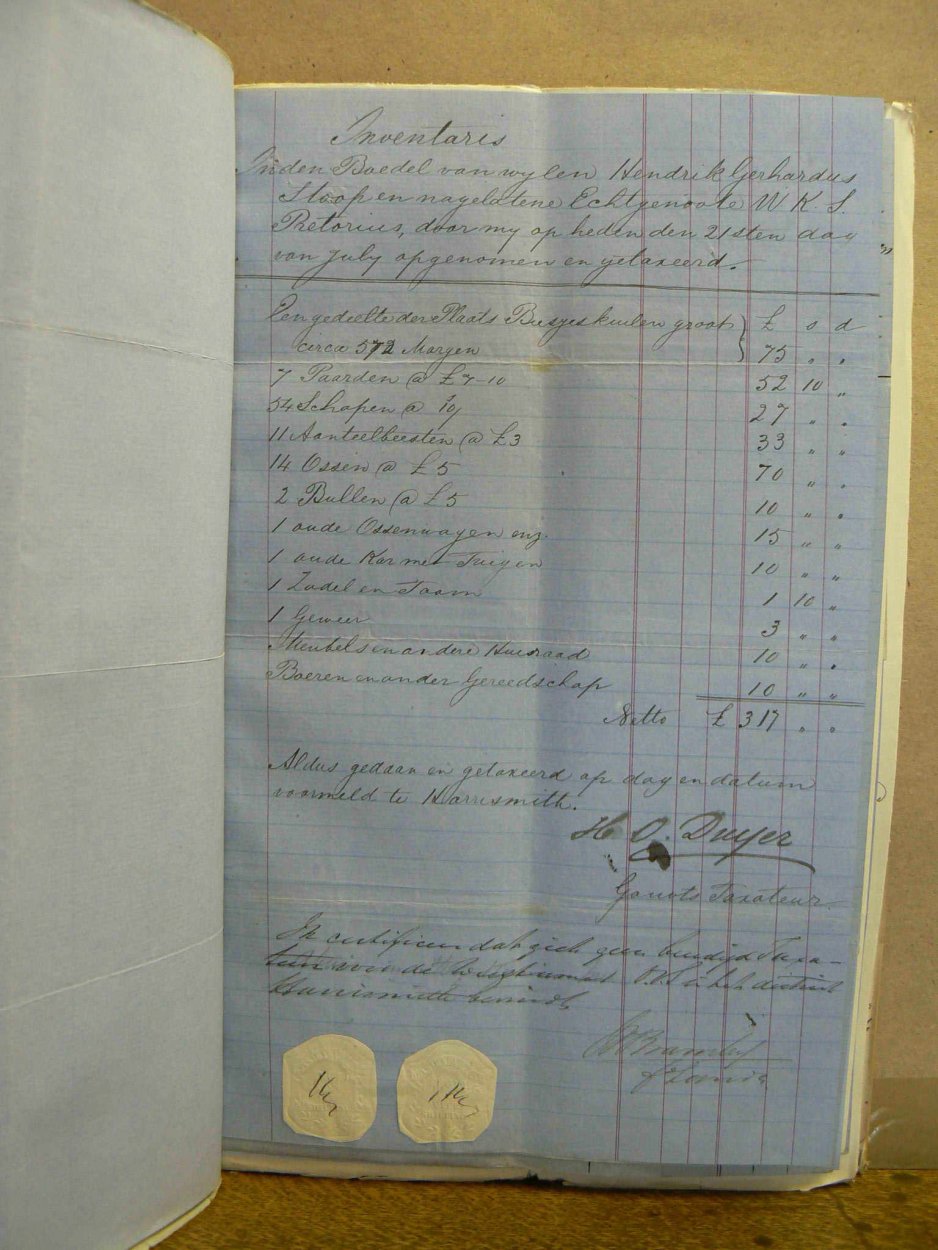 Inventaris
In den Boedel van wylen Hendrik Gerhardus
Stoop en nagelatene Echtgenoote W K. S.
Pretorius, door my op heden den 21sten dag
van July opgenomen en getaxeerd.
Een gedeelte der Plaats Biesjeskuilen groot } £ s d
circa 572 Morgen 75 " "
7 Paarden @ £7-10 52 10 "
54 Schapen @ 10/ 27 " "
11 Aanteelbeesten @ £3 33 " "
14 Ossen @ £5 70 " "
2 Bullen @ £5 10 " "
1 oude Ossenwagen enz. 15 " "
1 oude Kar met Tuigen 10 " "
1 Zadel en Toom 1 10 "
1 Geweer 3 " "
Meubels en andere Huisraad 10 " "
Boeren en ander Gereedschap 10 " "
Netto £ 317 " "
Aldus gedaan en getaxeerd op dag en datum
voormeld te Harrismith.
H O. Dwyer
Gouvts Taxateur
Ik certificeer dat zich geen beedigd Taxa-
teur van de Weeskamer O.V.S. in het district
Harrismith bevindt